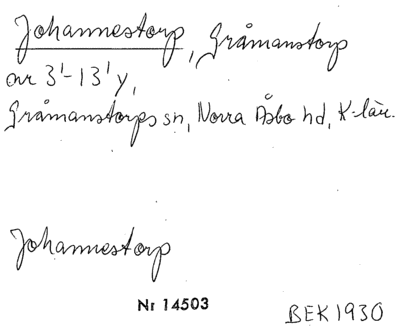 Johannestorp, Gråmanstorp
nr 3¹-13¹ y,
Gråmanstorps sn, Norra Åsbo hd, K-län.
Johannestorp
Nr 14503
BEK 1930